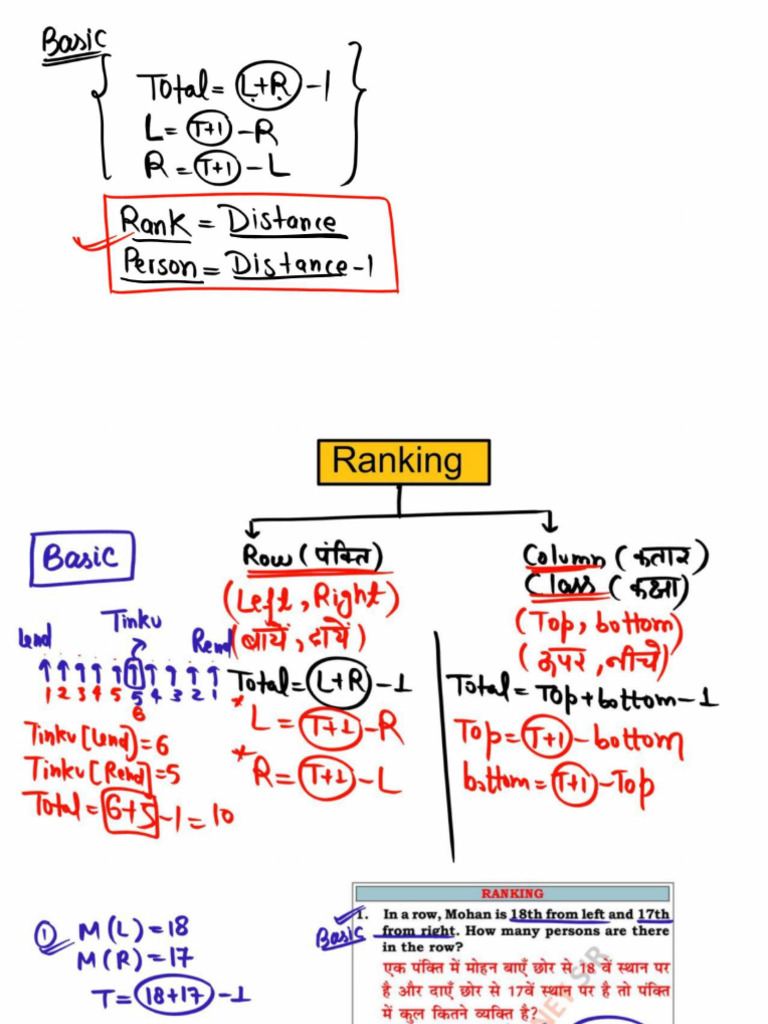 Basic
Total = L+R -1
L = T+1 -R
R = T+1 -L
Rank = Distance
Person = Distance -1
Ranking
Basic
Row (पंक्ति)
(Left, Right)
(बायें, दायें)
Total = L+R -1
L = T+1 -R
R = T+1 -L
Column (कतार)
Class (कक्षा)
(Top, bottom)
(ऊपर, नीचे)
Total = Top+bottom-1
Top = T+1 -bottom
bottom = T+1 -Top
Tinku
Lend Rend
1 2 3 4 5 5 4 3 2 1
6
Tinku [Lend] = 6
Tinku [Rend] = 5
Total = 6+5 -1 = 10
① M(L) = 18
M(R) = 17
T = 18+17 -1
RANKING
Basic
1. In a row, Mohan is 18th from left and 17th
from right. How many persons are there
in the row?
एक पंक्ति में मोहन बाएँ छोर से 18 वें स्थान पर
है और दाएँ छोर से 17वें स्थान पर है तो पंक्ति
में कुल कितने व्यक्ति है?
SIR